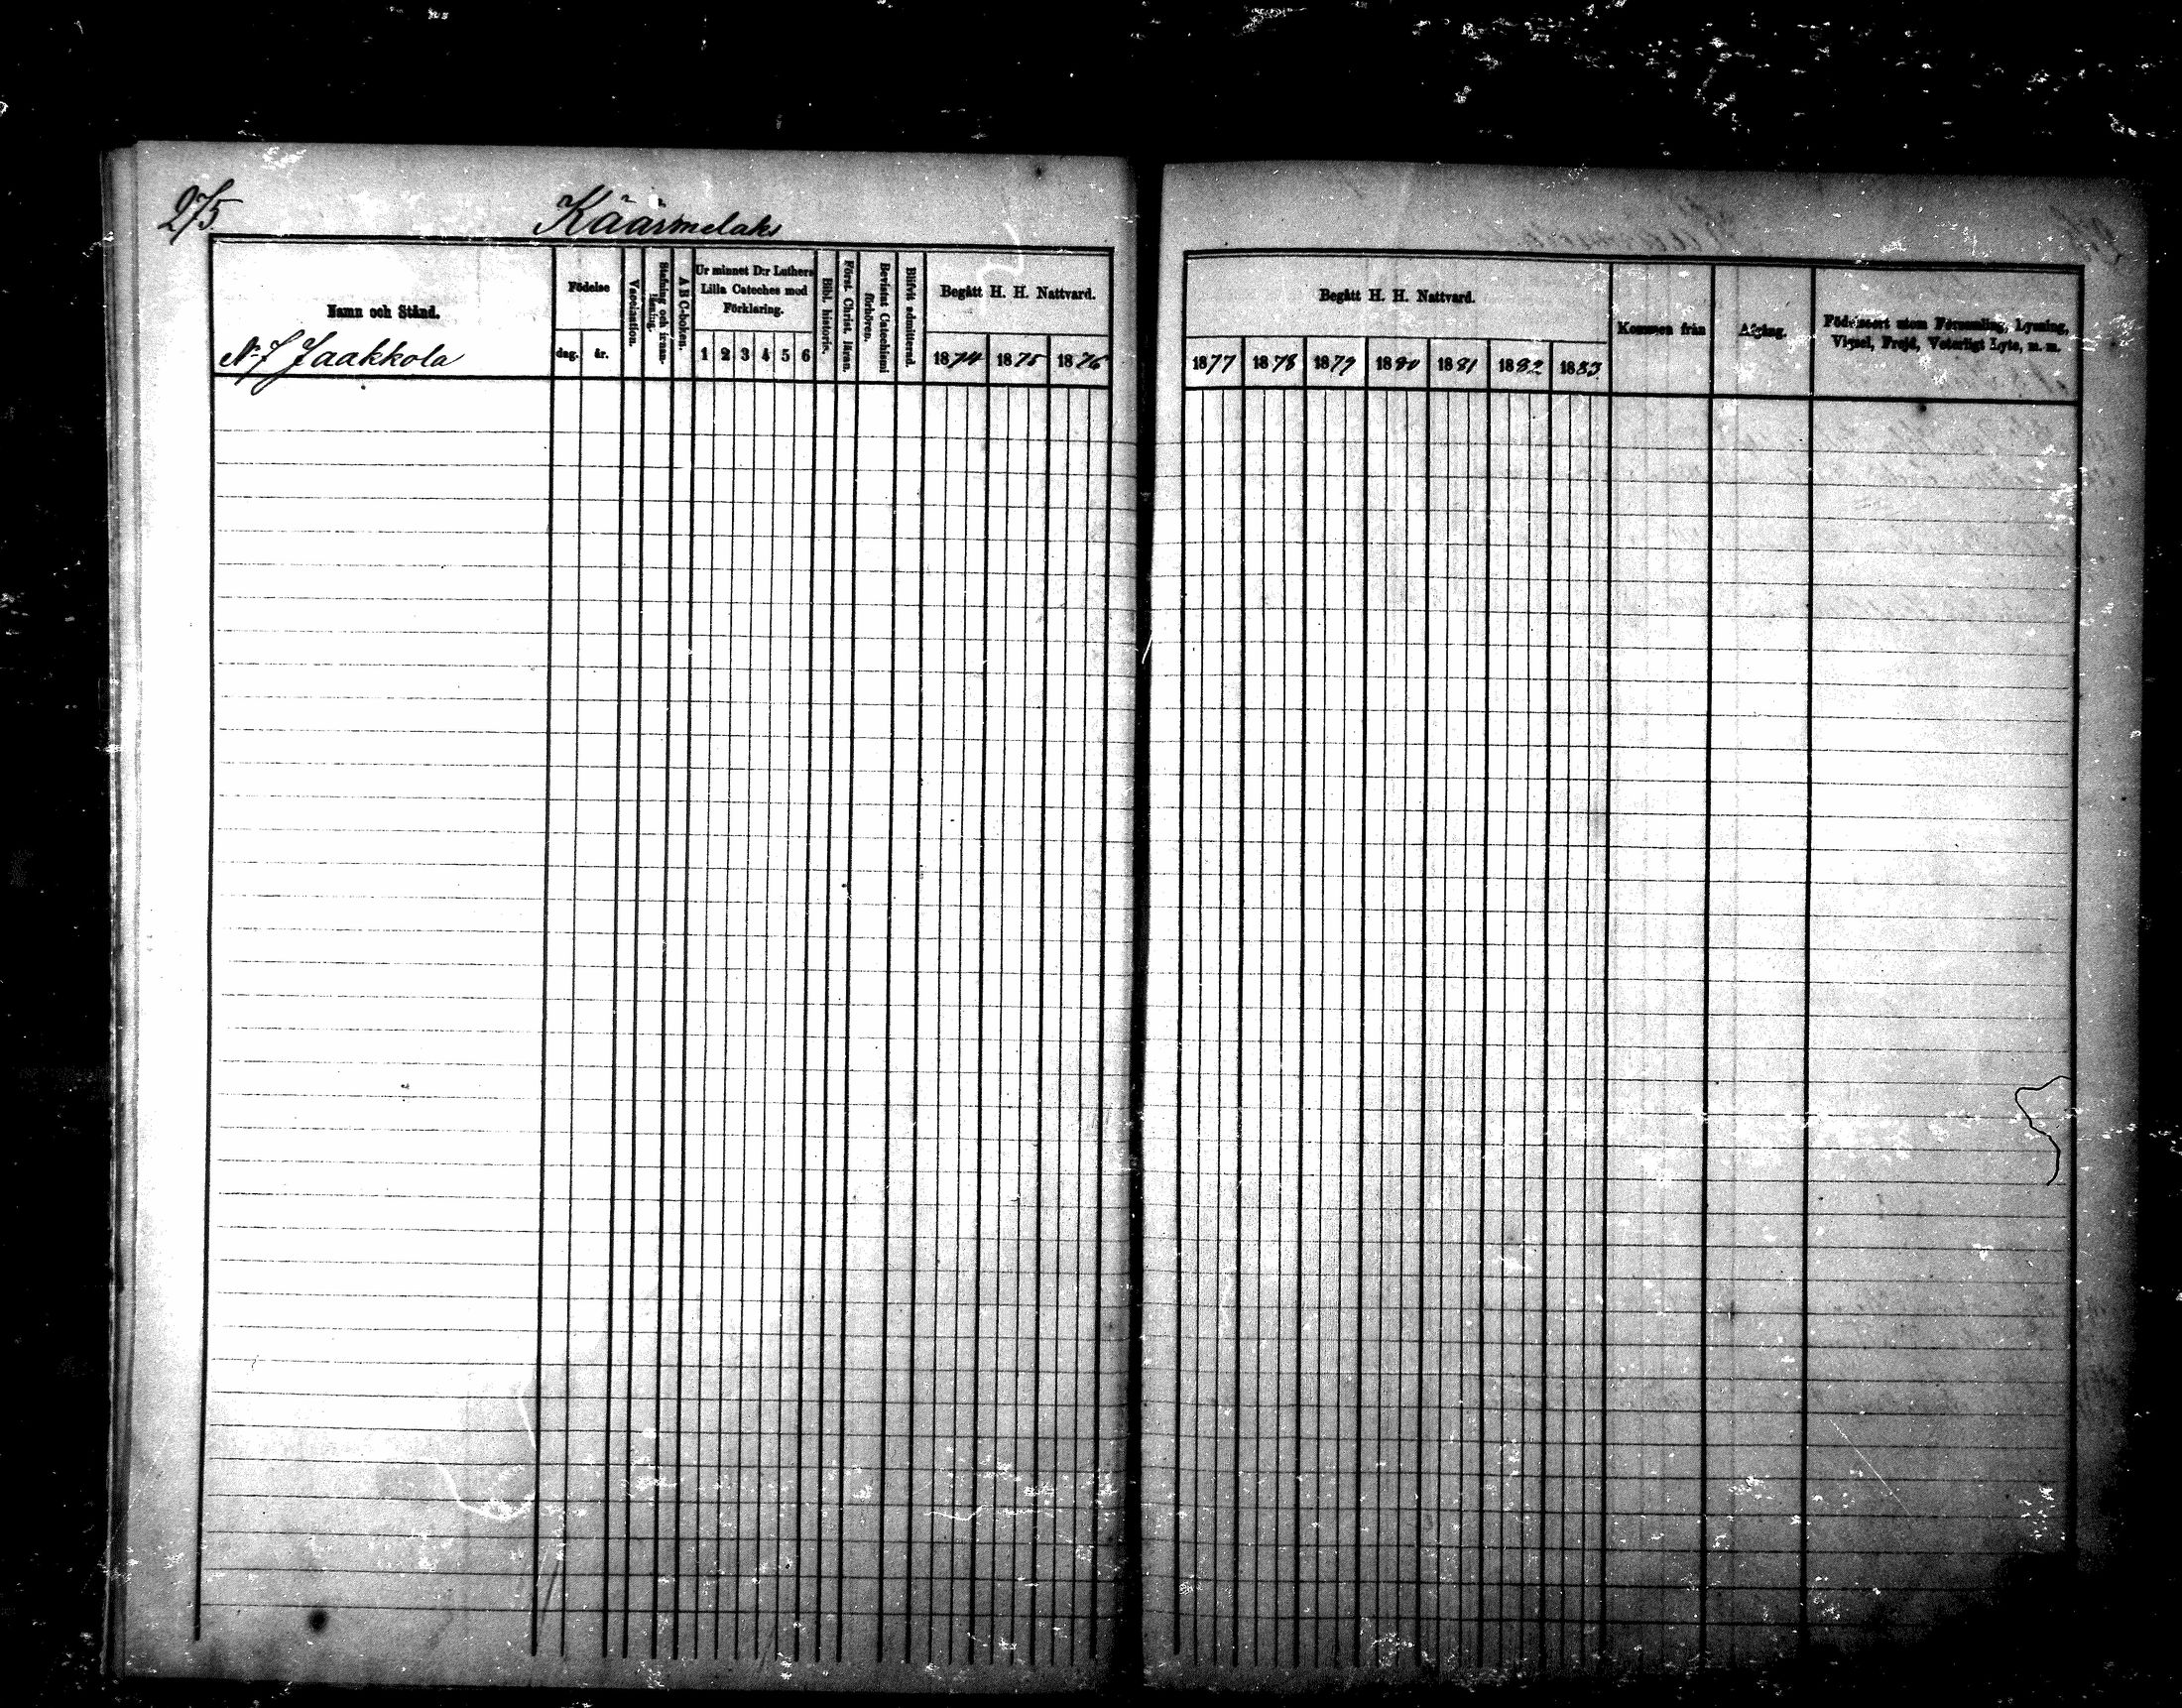 275.
Käärmelaks
Namn och Stånd.
N:o 7 Jaakkola
Födelse
dag. år.
Vaccination.
Stafning och innan-läsning.
A B C-boken.
Ur minnet D:r Luthers
Lilla Cateches med
Förklaring.
1 2 3 4 5 6
Bibl. historie.
Först. Christ. läran.
Bevistat Catechismi förhören.
Blifvit admitterad.
Begått H. H. Nattvard.
1874 1875 1876
Begått H. H. Nattvard.
1877 1878 1879 1880 1881 1882 1883
Kommen från
Afgång.
Födelseort utom Församling, Lysning,
Vigsel, Frejd, Veterligt Lyte, m. m.